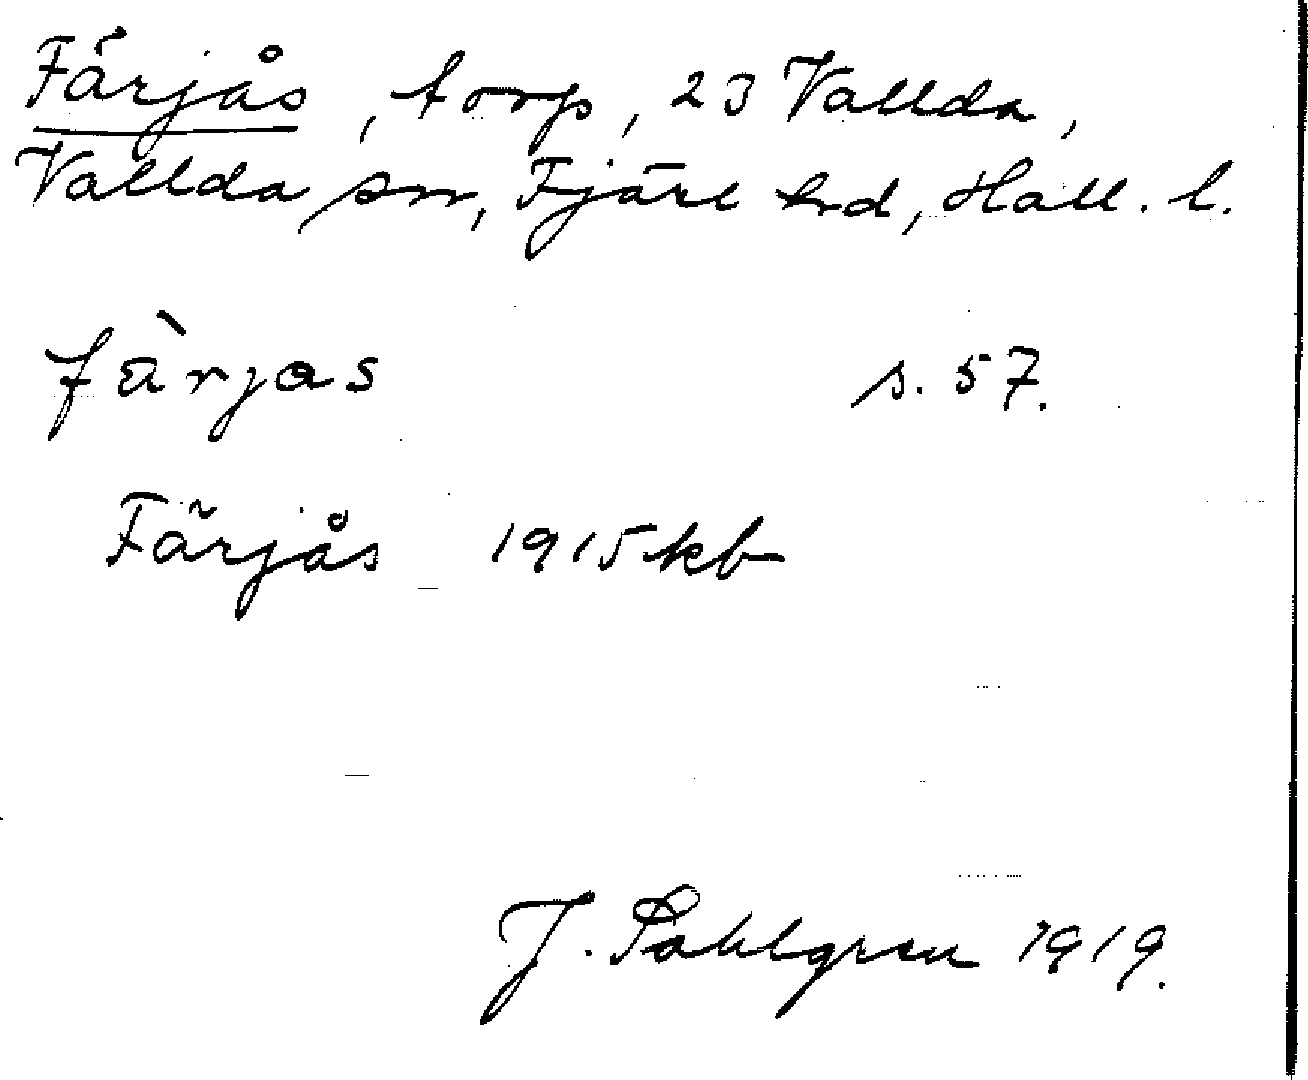 Färjås, torp, 23 Vallda,
Vallda sn, Fjäre hrd, Hall. l.
fàrjas s. 57.
Färjås 1915 kb
J. Sahlgren 1919.